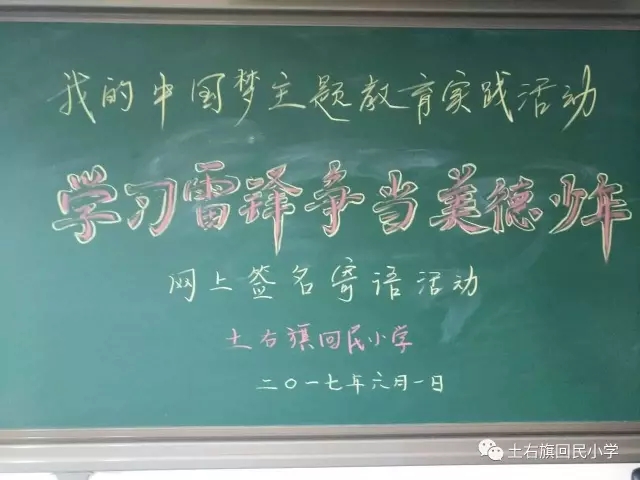 我的中国梦主题教育实践活动
学习雷锋争当美德少年
网上签名寄语活动
土右旗回民小学
二〇一七年六月一日
土右旗回民小学